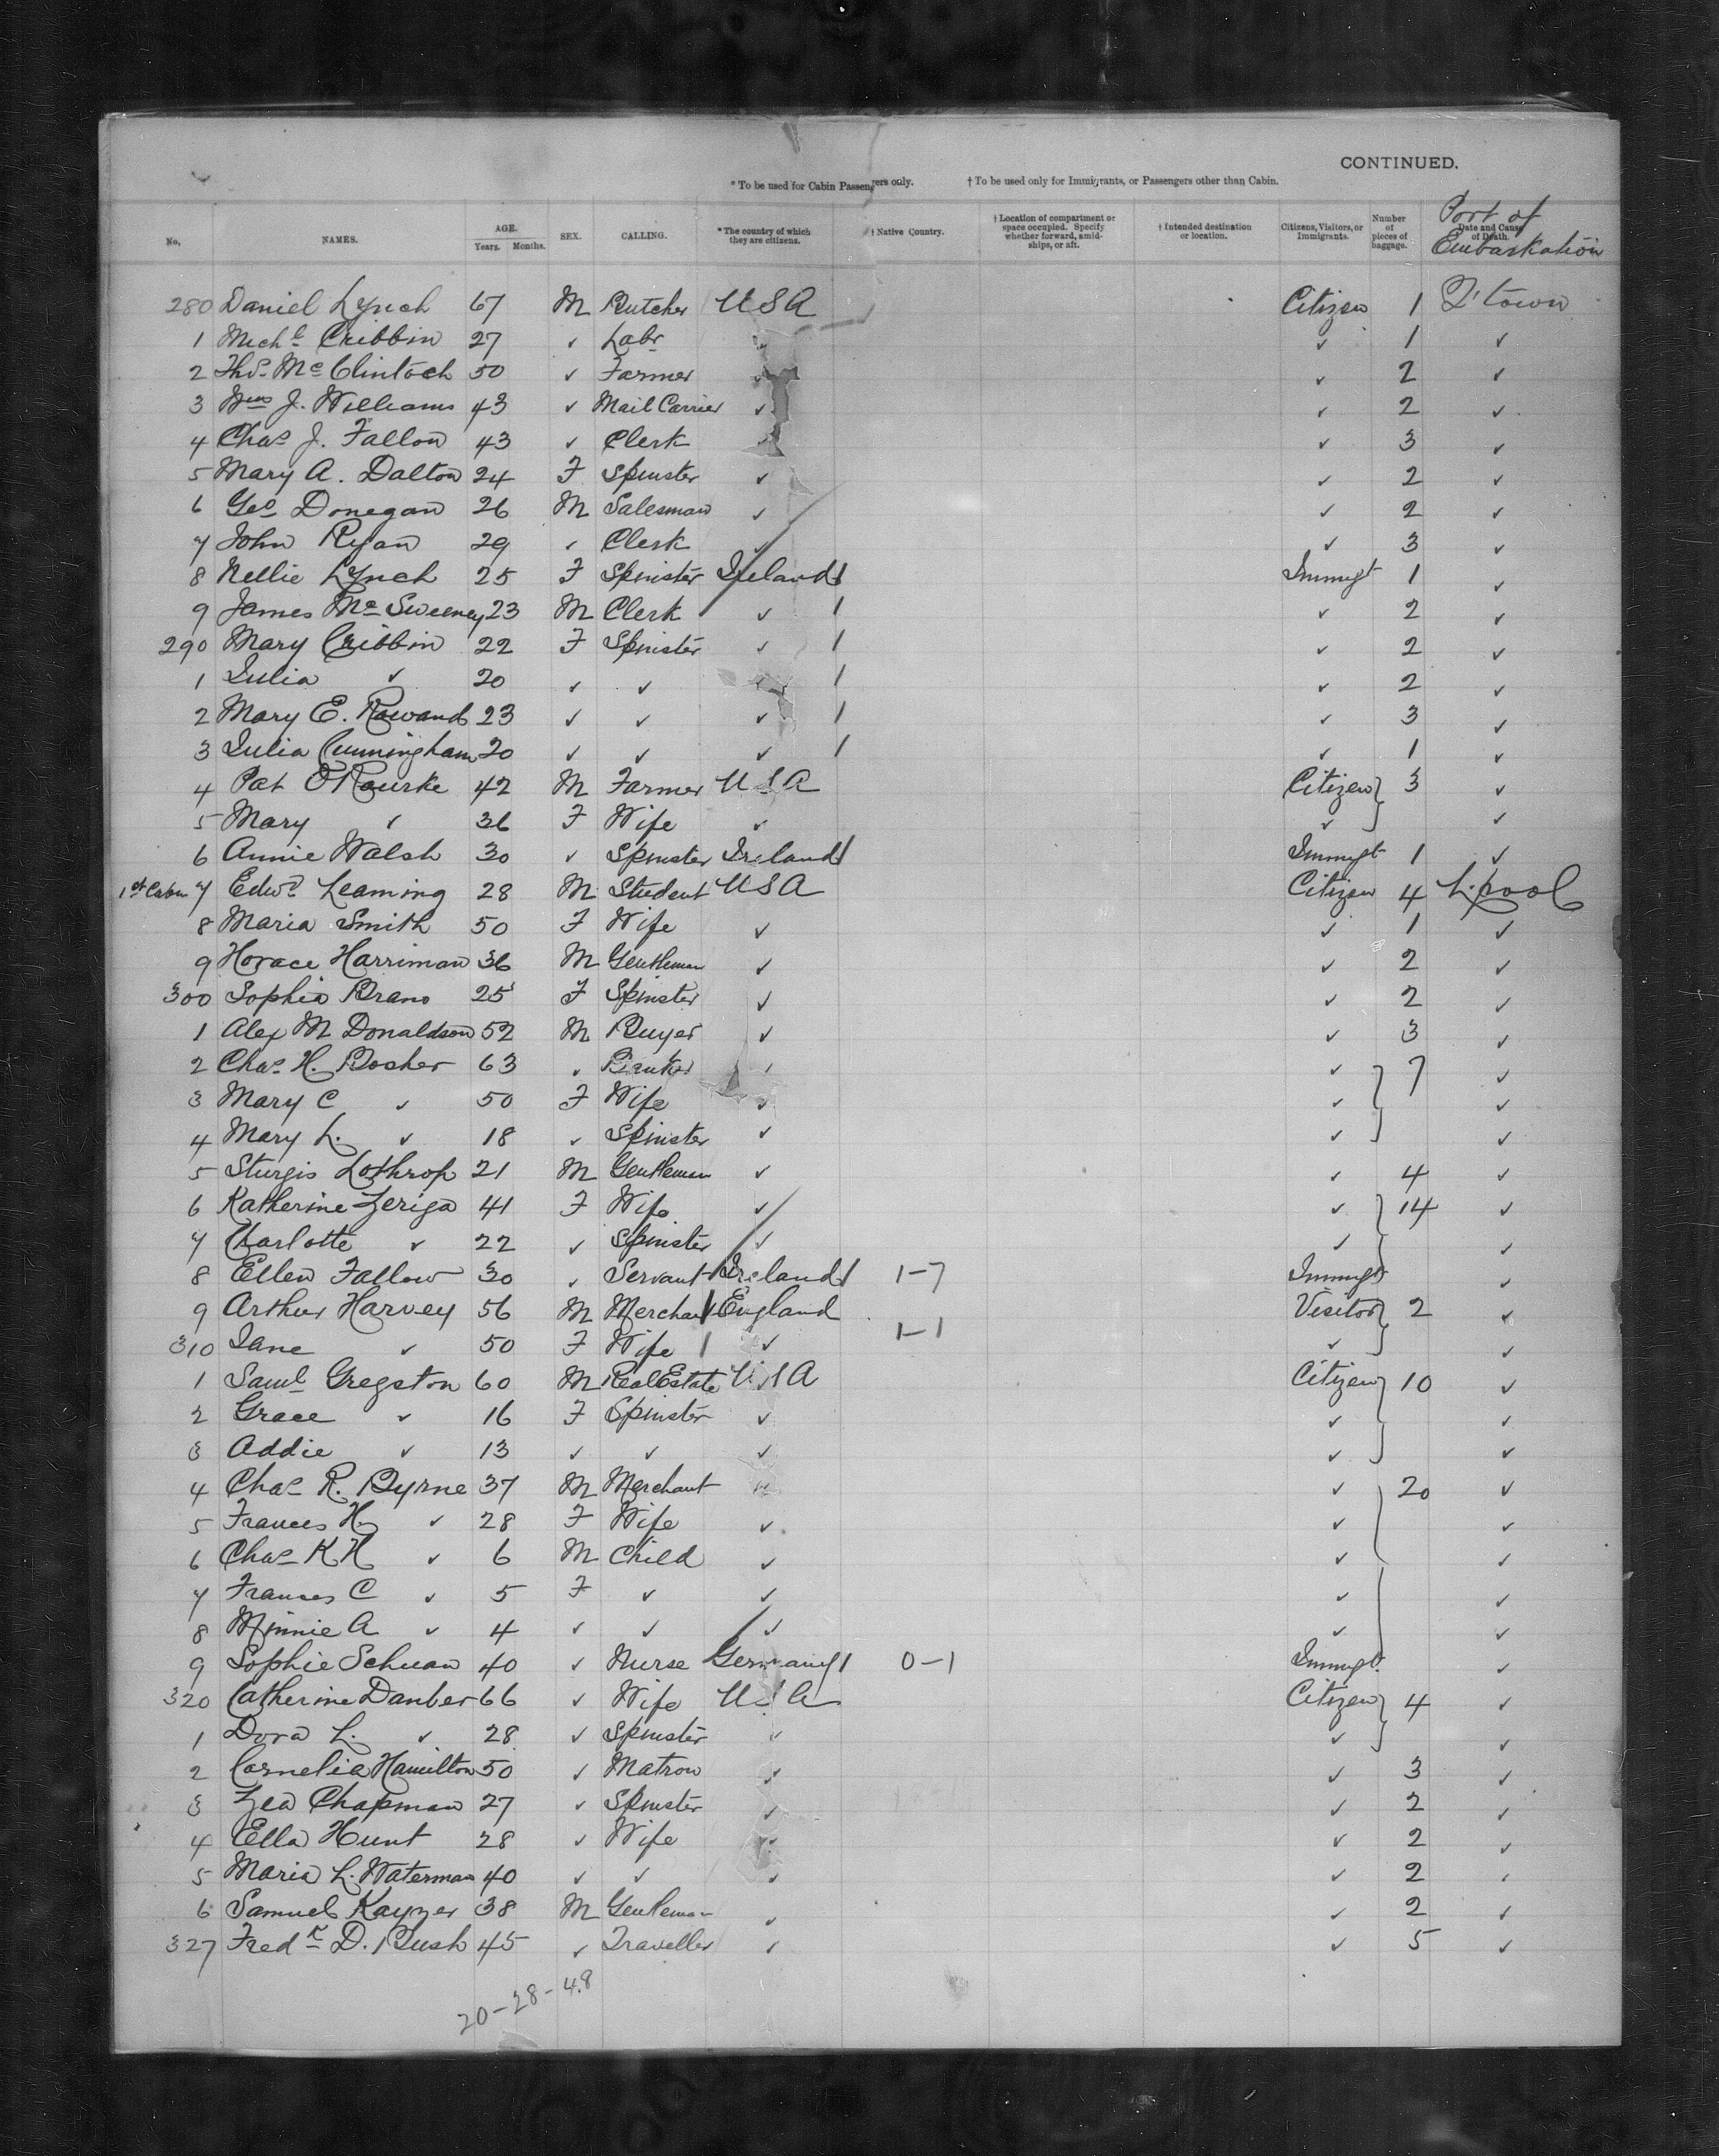 CONTINUED.
* To be used for Cabin Passengers only. † To be used only for Immigrants, or Passengers other than Cabin.
No. NAMES. AGE. Years. Months. SEX. CALLING. * The country of which they are citizens. † Native Country. † Location of compartment or space occupied. Specify whether forward, amidships, or aft. † Intended destination or location. Citizens, Visitors, or Immigrants. Number of pieces of baggage. Date and Cause of Death. Port of Embarkation
280 Daniel Lynch 67 M Butcher USA Citizen 1 Q'town
1 Michl Cribbin 27 ✓ Labr ✓ ✓ 1 ✓
2 Thos. Mc Clintock 50 ✓ Farmer ✓ ✓ 2 ✓
3 Wm J. Williams 43 ✓ Mail Carrier ✓ ✓ 2 ✓
4 Chas J. Fallon 43 ✓ Clerk ✓ ✓ 3 ✓
5 Mary A. Dalton 24 F Spinster ✓ ✓ 2 ✓
6 Geo Donegan 26 M Salesman ✓ ✓ 2 ✓
7 John Ryan 29 ✓ Clerk ✓ ✓ 3 ✓
8 Nellie Lynch 25 F Spinster Ireland 1 Immigt 1 ✓
9 James Mc Sweeney 23 M Clerk ✓ 1 ✓ 2 ✓
290 Mary Cribbin 22 F Spinster ✓ 1 ✓ 2 ✓
1 Julia ✓ 20 ✓ ✓ ✓ 1 ✓ 2 ✓
2 Mary E. Rowand 23 ✓ ✓ ✓ 1 ✓ 3 ✓
3 Julia Cunningham 20 ✓ ✓ ✓ 1 ✓ 1 ✓
4 Pat O'Rourke 42 M Farmer USA Citizen 3 ✓
5 Mary ✓ 36 F Wife ✓ ✓ ✓
6 Annie Walsh 30 ✓ Spinster Ireland 1 Immigt 1 ✓
1st Cabin 7 Edwd. Leaming 28 M Student USA Citizen 4 L'pool
8 Maria Smith 50 F Wife ✓ ✓ 1 ✓
9 Horace Harriman 36 M Gentleman ✓ ✓ 2 ✓
300 Sophia Brano 25 F Spinster ✓ ✓ 2 ✓
1 Alex M Donaldson 52 M Buyer ✓ ✓ 3 ✓
2 Chas H. Bosher 63 ✓ Banker ✓ ✓ 7 ✓
3 Mary C ✓ 50 F Wife ✓ ✓ ✓
4 Mary L. ✓ 18 ✓ Spinster ✓ ✓ ✓
5 Sturgis Lothrop 21 M Gentleman ✓ ✓ 4 ✓
6 Katherine Zeriga 41 F Wife ✓ ✓ 14 ✓
7 Charlotte ✓ 22 ✓ Spinster ✓ ✓ ✓
8 Ellen Fallow 30 ✓ Servant Ireland 1 1-7 Immigt ✓
9 Arthur Harvey 56 M Merchant 1 England Visitor 2 ✓
310 Jane ✓ 50 F Wife 1 ✓ 1-1 ✓ ✓
1 Saml Gregston 60 M Real Estate USA Citizen 10 ✓
2 Grace ✓ 16 F Spinster ✓ ✓ ✓
3 Addie ✓ 13 ✓ ✓ ✓ ✓ ✓
4 Chas R. Byrne 37 M Merchant ✓ ✓ 20 ✓
5 Frances H. ✓ 28 F Wife ✓ ✓ ✓
6 Chas K H ✓ 6 M Child ✓ ✓ ✓
7 Frances C ✓ 5 F ✓ ✓ ✓ ✓
8 Minnie A ✓ 4 ✓ ✓ ✓ ✓ ✓
9 Sophie Schuan 40 ✓ Nurse Germany 1 0-1 Immigt. ✓
320 Catherine Danber 66 ✓ Wife USA Citizen 4 ✓
1 Dora L. ✓ 28 ✓ Spinster ✓ ✓ ✓
2 Cornelia Hamilton 50 ✓ Matron ✓ ✓ 3 ✓
3 Zea Chapman 27 ✓ Spinster ✓ ✓ 2 ✓
4 Ella Hunt 28 ✓ Wife ✓ ✓ 2 ✓
5 Maria L. Waterman 40 ✓ ✓ ✓ ✓ 2 ✓
6 Samuel Kayzer 38 M Gentleman ✓ ✓ 2 ✓
327 Fredk D. Bush 45 ✓ Traveller ✓ ✓ 5 ✓
20-28-48